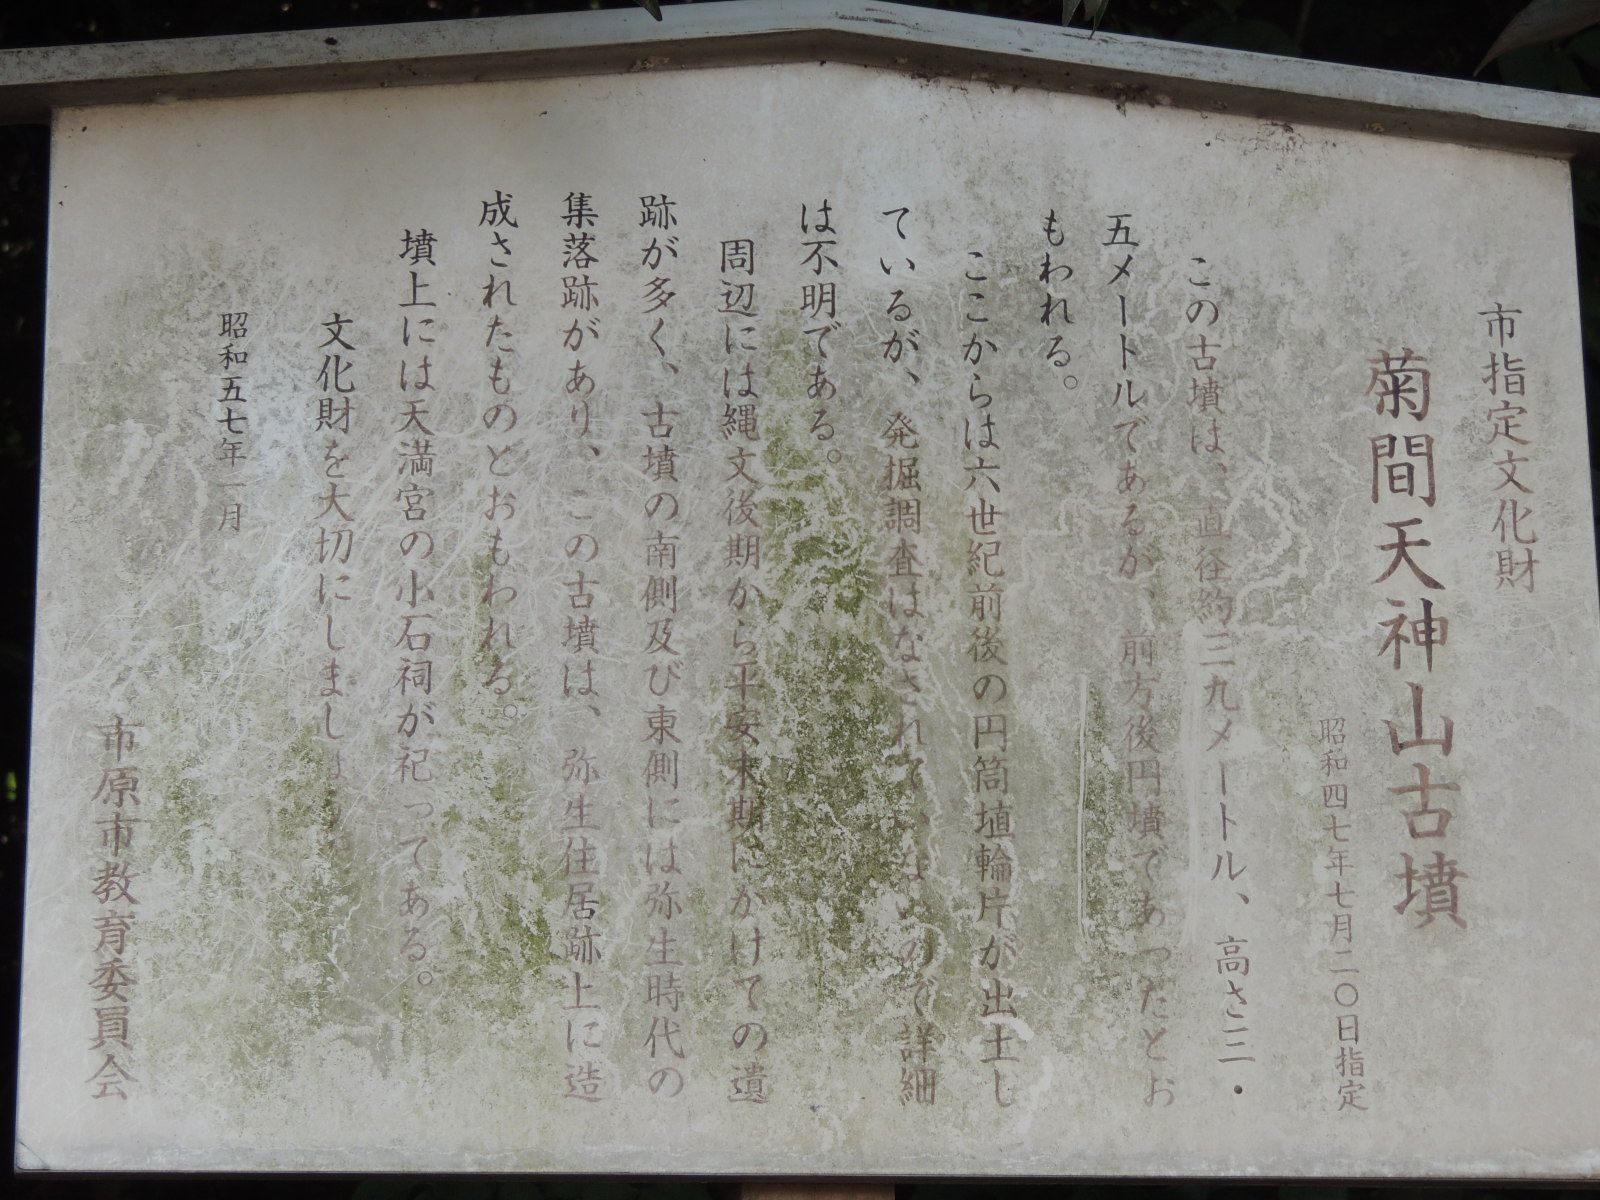 市指定文化財
菊間天神山古墳
昭和四七年七月二〇日指定
この古墳は、直径約三九メートル、高さ三・
五メートルであるが、前方後円墳であったとお
もわれる。
ここからは六世紀前後の円筒埴輪片が出土し
ているが、発掘調査はなされていないので詳細
は不明である。
周辺には縄文後期から平安末期にかけての遺
跡が多く、古墳の南側及び東側には弥生時代の
集落跡があり、この古墳は、弥生住居跡上に造
成されたものとおもわれる。
墳上には天満宮の小石祠が祀ってある。
文化財を大切にしましょ
昭和五七年一月
市原市教育委員会